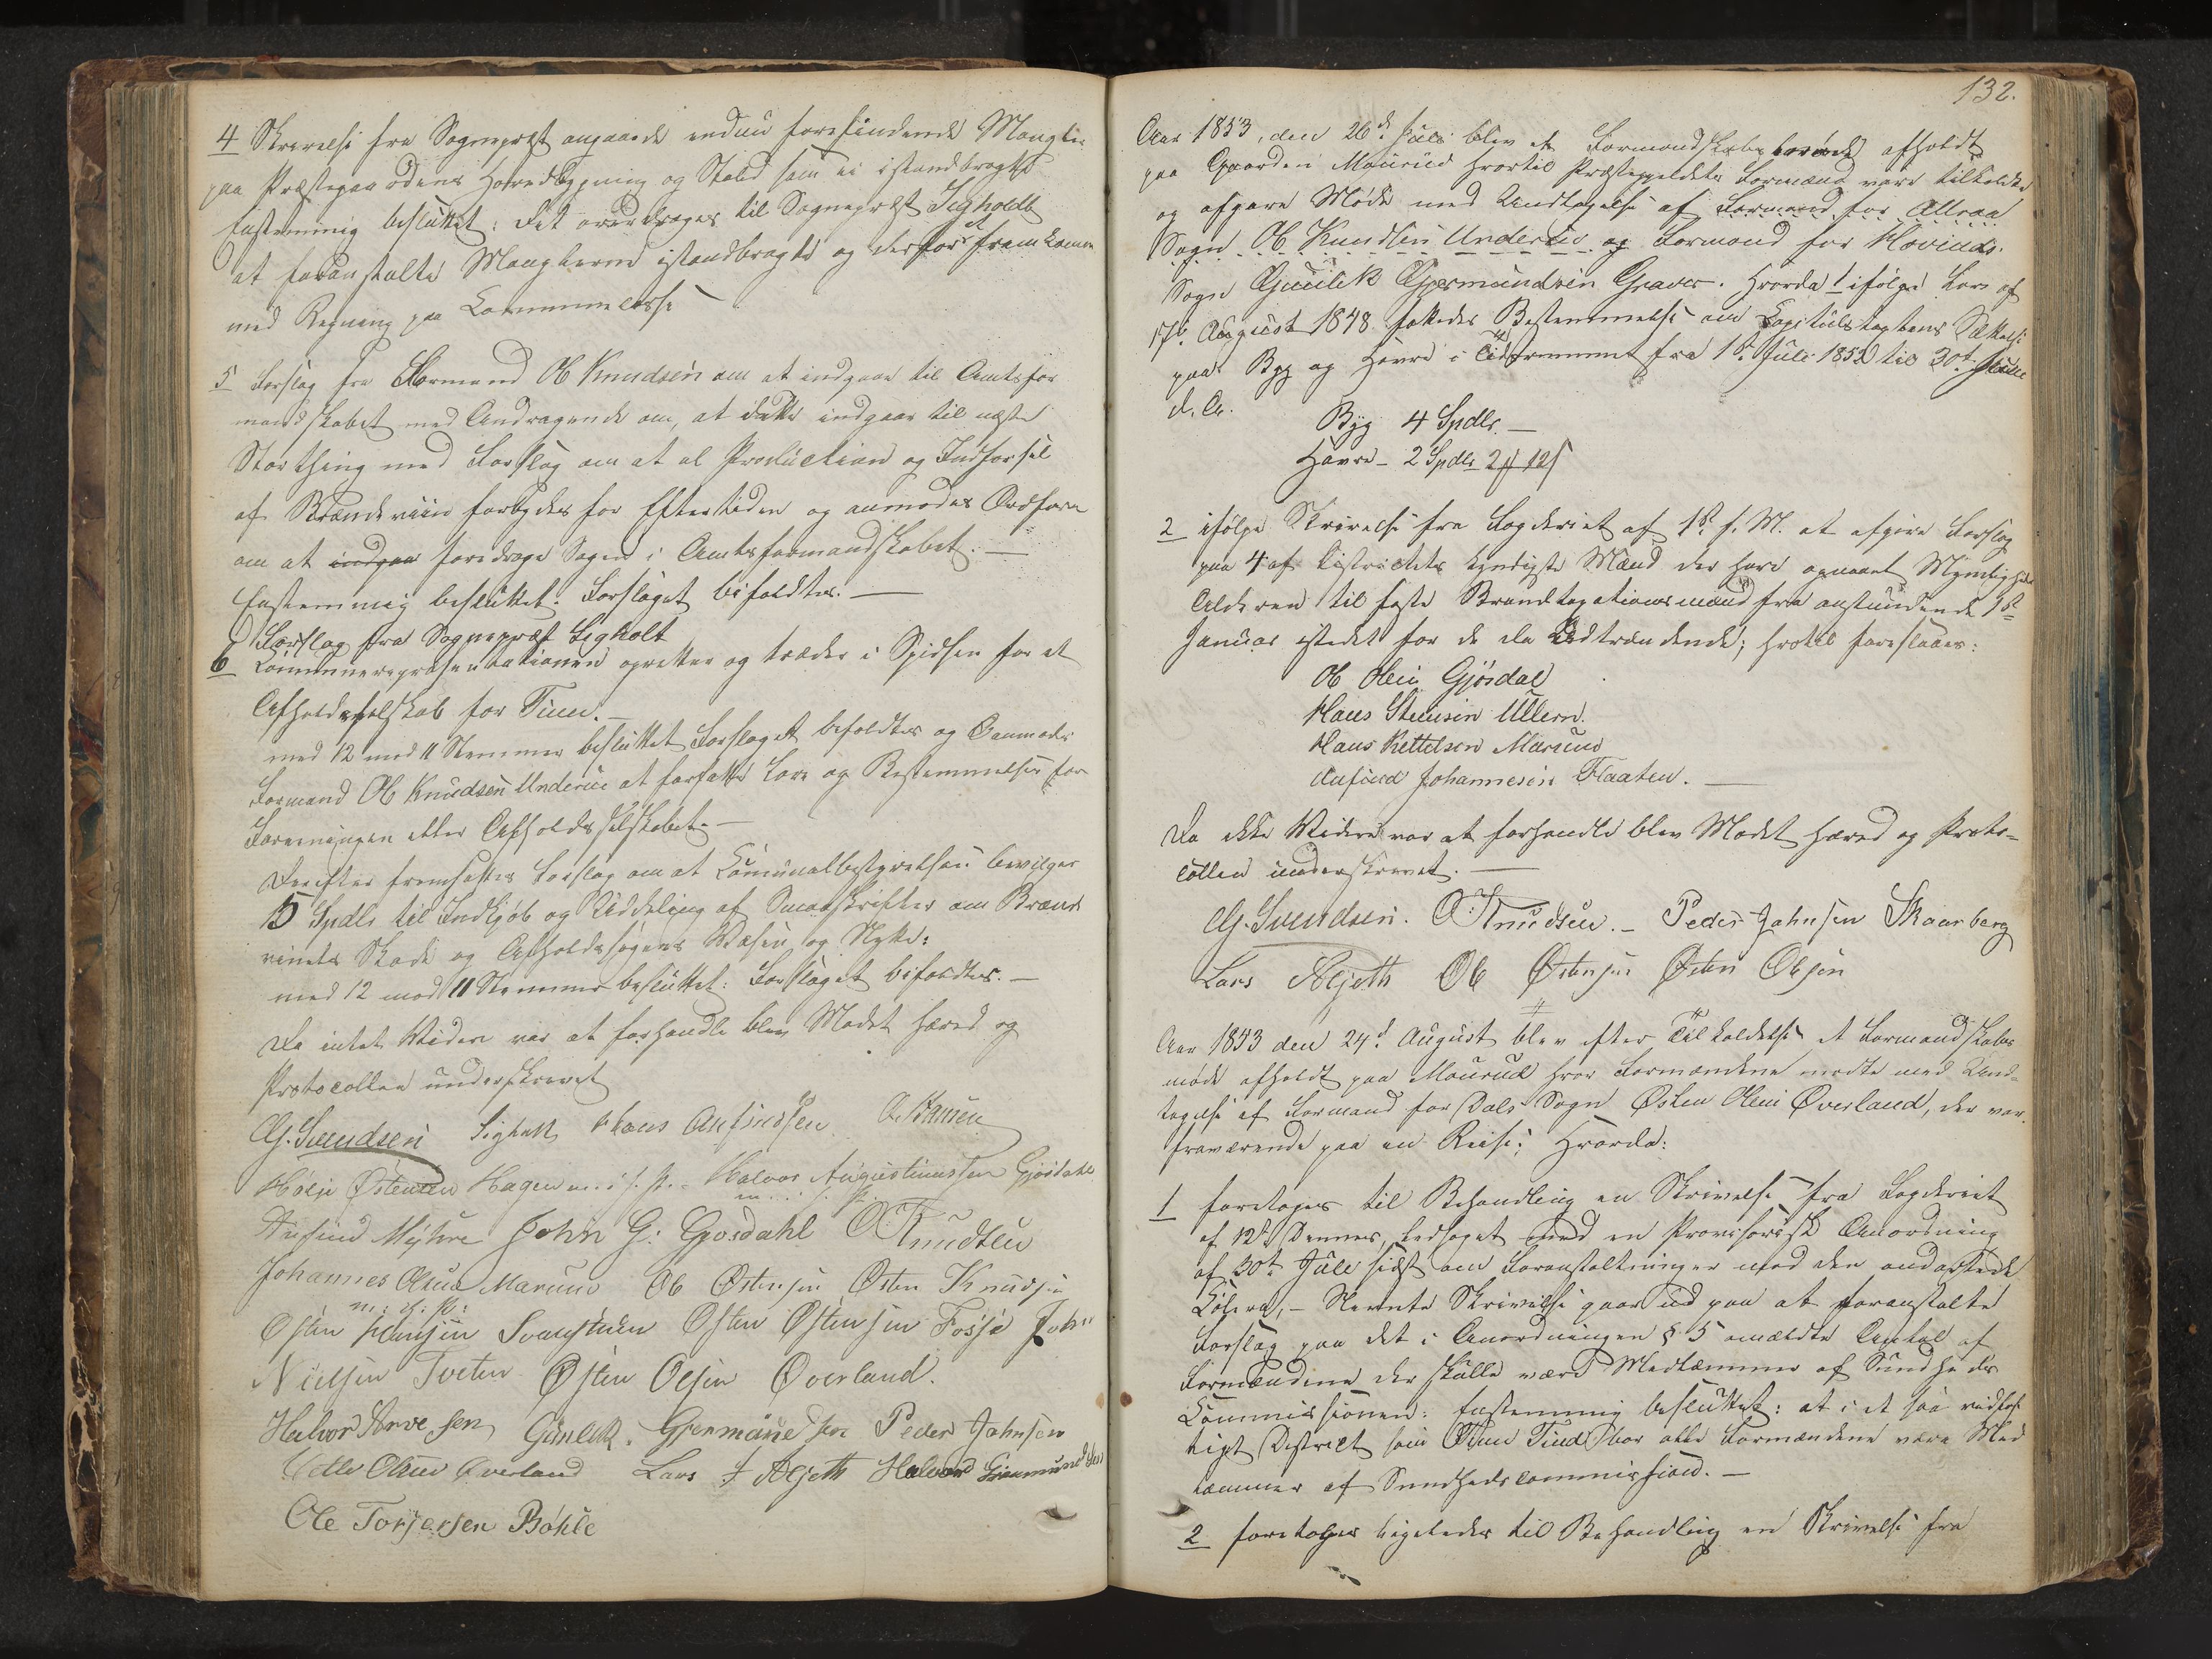 4 Skrivelse fra Sognepræst angaaende endnu forefindende Mangler
paa Præstegaardens Hovedbygning og Stald som ei istandbragt
Eenstemmig besluttet: Det overdrages til Sognepræst Sigholt
at foranstalte Manglerne istandbragte og derfor at fremkomme
med Regning paa Communecasse
5 Forslag fra Formand Ole Knudsen om at indgaae til Amtsfor
mandskabet med Andragende om, at dette indgaar til næste
Storthing med Forslag om at al Production og Indførsel
af Brændeviin forbydes for Eftertiden og anmodes Ordføren
om at indgaa foredrage Sagen i Amtsformandskabet. —
Eenstemmig besluttet: Forslaget bifaldtes. —
Forslag fra Sognepræst Sigholt
6 Communerepræsentationen opretter og træder i Spidsen for et
Afholdsselskab for Tinn. —
med 12 mod 11 Stemmer besluttet Forslaget bifaldtes og Anmodes
Formand Ole Knudsen Underlie at forfatte Love og Bestemmelser for
Foreningen eller Afholdsselskabet. —
Derefter fremsattes Forslag om at Communalbestyrelsen bevilger
15 Spdlr til Indkjøb og Uddeling af Smaaskrifter om Brænde
vinets Skade og Afholdssagens Væsen og Nytte:
med 12 mod 11 Stemmer besluttet: Forslaget bifaldtes. —
Da intet Videre var at forhandle blev Mødet hævet og
Protocollen underskrevet
G. Svendsen Sigholt Hans Anfindsen
Høljе Østensen Hagen m. i. f. P. Halvor Augustinussen Gjøsdahl
m. i. f. P.
Anfind Myhre John G: Gjøsdahl O Knudsen
Johannes Olsen Marum Ole Østensen Østen Knudsen
m. i. P.
Østen Hansen Østen Østensen Fosse John
Nielsen Tveten Østen Olsen Øverland.
Halvor Arvesen Gunlek. Gjermundsen Peder Johnsen
Olsen Øverland Lars Aljeth Halvor Gjermundsen
Ole Torjersen Bøhle
132.
Aar 1853, den 26de Juli blev et Formandskabs møde afholdt
paa Gaarden Maurud hvortil Præstegjeldets Formænd vare tilkaldte
og afgave Møde med Undtagelse af Formand for Attraa
Sogn Ole Knudsen Underlie og Formand for Hovinds
Sogn Gunlek Gjermundsen Graver. Hvorda 1 ifølge Lov af
17de August 1848 fattedes Bestemmelse om Capitelstaxtens Sættelse
paa Byg og Havre i Tidsrummet fra 1ste Juli 1852 til 30te Juni
d. A.
Byg 4 Spdlr. —
Havre — 2 Spdlr 2 12
2 ifølge Skrivelse fra Fogderiet af 1ste f. M. at afgive Forslag
paa 4 af Districtets kyndigste Mænd der have opnaaet Myndigheds
Alderen til faste Brandtaxationsmænd fra anstundende 1ste
Januar istedet for de da Udtrædende; hvortil foreslaaes:
Ole Olsen Gjøsdal
Hans Steensen Ullern.
Hans Kittelsen Marum
Anfind Johannesen Flaaten. —
Da ikke Videre var at forhandle blev Mødet hævet og Proto-
collen underskrevet. —
G. Svendsen. O Knudsen. — Peder Johnsen Skaarberg
Lars Aljeth Ole Østensen Østen Olsen
Aar 1853 den 24de August blev efter Tilkaldelse et Formandskabs
møde afholdt paa Maurud hvor Formændene mødte med Und-
tagelse af Formand for Dals Sogn Østen Olsen Øverland, der var
fraværende paa en Reise; Hvorda:
1 foretages til Behandling en Skrivelse fra Fogderiet
af 12te Dennes, ledsaget med en Provisorisk Anordning
af 30te Juli sidst om Foranstaltninger mod den ondartede
Cholera, — Nævnte Skrivelse gaar ud paa at foranstalte
Forslag paa det i Anordningen § 5 omældte Antal af
Formændene der skulle være Medlemmer af Sundheds
Commissionen: Eenstemmig besluttet: at i et saa vidtløf
tigt District som Tind bør alle Formændene være Med
lemmer af Sundhedscommission. —
2 foretages ligeledes til Behandling en Skrivelse fra